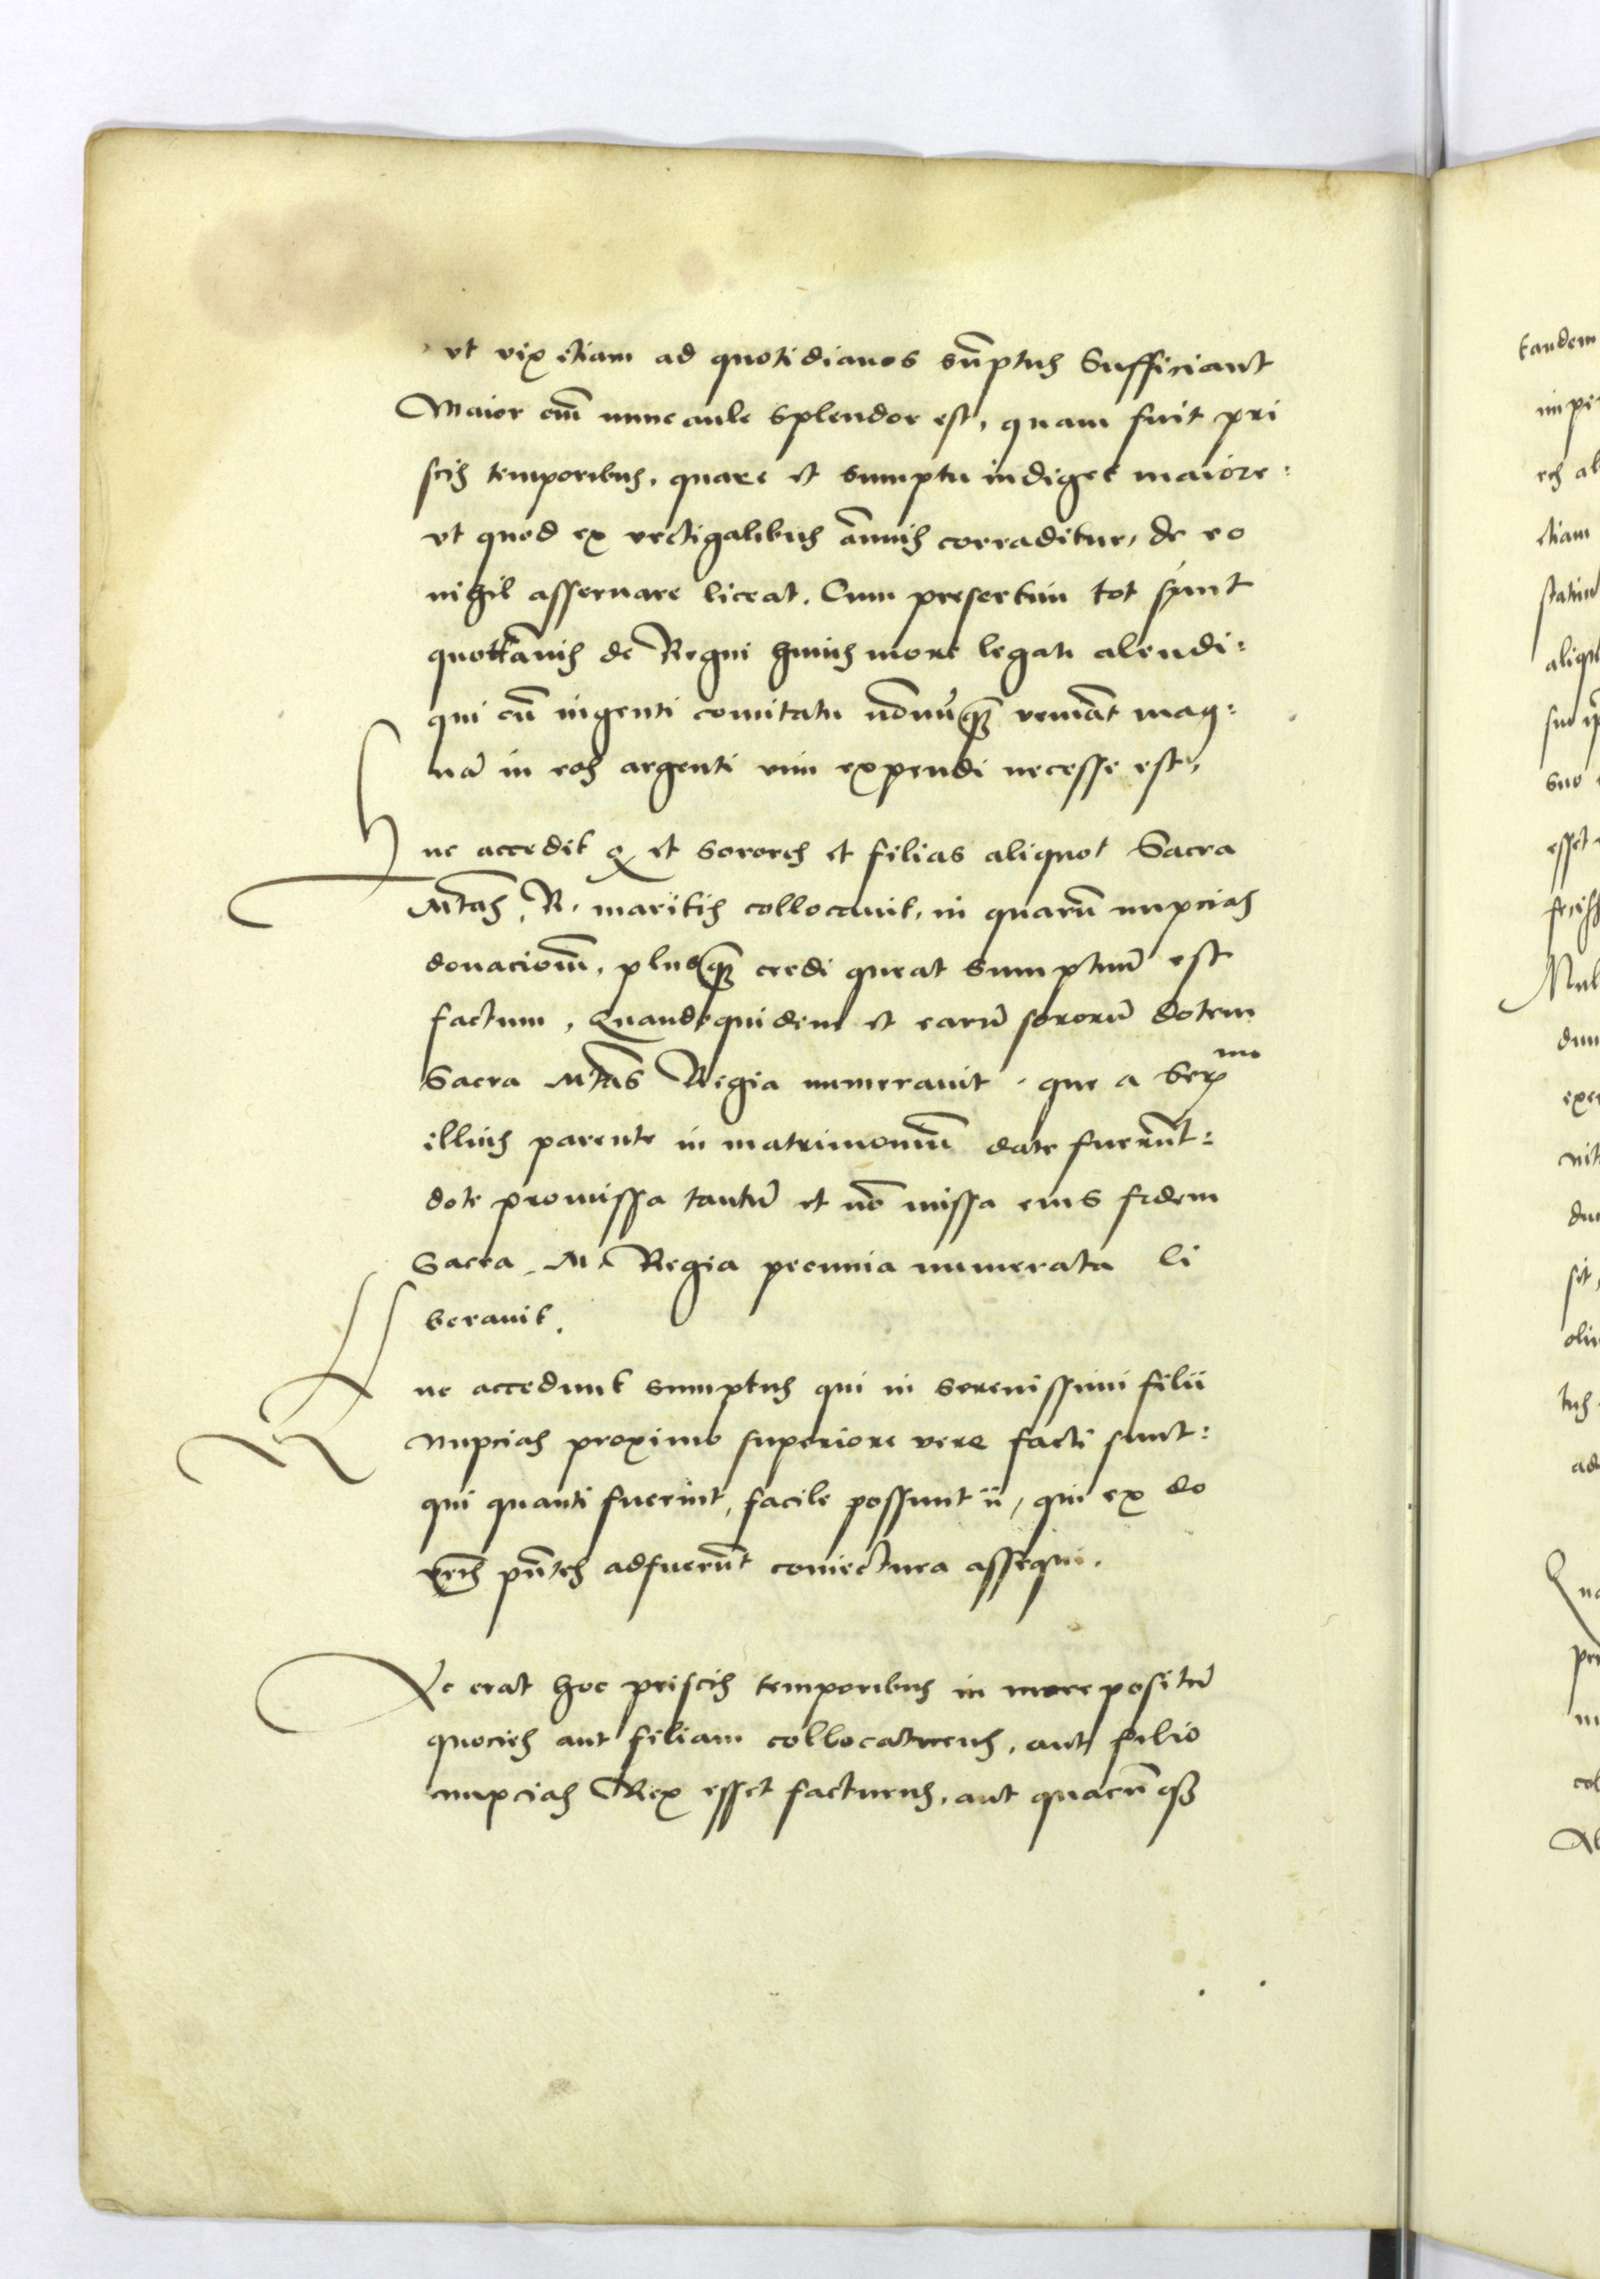 vt vix etiam ad quotidianos su̅ptus Sufficiant
Maior em̅ nunc aule Splendor est, quam fuit pri
scis temporibus, quare et sumptu indiget maiore:
vt quod ex vectigalibus a̅nuis corraditur, de eo
nihil asseruare liceat. Cum presertim tot sunt
quotta̅nis de Regni huius more legati alendi:
qui cu̅ ingenti comitatu no̅nu̅qꝫ venia̅t mag:
na̅ in eos argenti vim expendi necesse est,
Huc accedit ꝙ et sorores et filias aliquot Sacra
Mtas. R. maritis collocauit, in quaru̅ nupcias
donacionu̅, plusqꝫ credi queat sumptuu̅ est
factum, Quandoquidem et earu̅ sororu̅ dotem
Sacra Mtas Regia numerauit. que a Serᵐᵒ
illius parente in matrimoniu̅ date fueru̅t:
dote promissa tantu̅ et no̅ missa eius fidem
Sacra M. Regia pecunia numerata li
berauit.
Huc accedunt sumptus qui in serenissimi filii
nupcias proximo superiore vere facti sunt:
qui quanti fuerint, facile possunt ii, qui ex do
r̅es pn̅tes adfueru̅t coniectura assequi.
Ne erat hoc priscis temporibus in more positu̅
quocies aut filiam collocaturus, aut filio
nupcias Rex esset facturus, aut quacu̅qꝫ
tandem